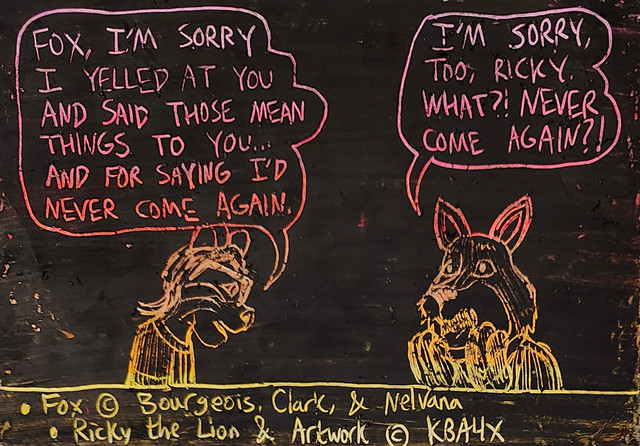 FOX, I'M SORRY
I YELLED AT YOU
AND SAID THOSE MEAN
THINGS TO YOU...
AND FOR SAYING I'D
NEVER COME AGAIN.
I'M SORRY,
TOO, RICKY.
WHAT?! NEVER
COME AGAIN?!
• Fox © Bourgeois, Clark, & Nelvana
• Ricky the Lion & Artwork © KBA4X